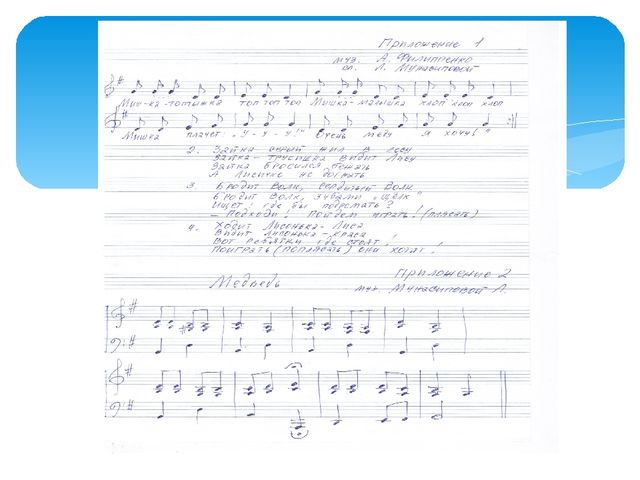 Приложение 1
муз. А. Филиппенко
сл. Л. Мунасиповой
Миш-ка-топтыжка топ топ топ Мишка-малышка хлоп хлоп хлоп
Мишка плачет: „У-у-у!" Очень мёду я хочу!"
2. Зайка серый жил в лесу
Зайка-трусишка видит Лису
Зайка бросился бежать
А Лисичке не догнать
3. Бродит Волк, сердитый Волк
Бродит Волк, зубами „щёлк"
Ищет: где бы подремать?
— Подходи! Пойдем играть! (плясать)
4. Ходит Лисонька-Лиса
Видит Лисонька-краса!
Вот ребятки где стоят!
Поиграть (поплясать) они хотят!
Приложение 2
Медведь муз. Мунасиповой Л.